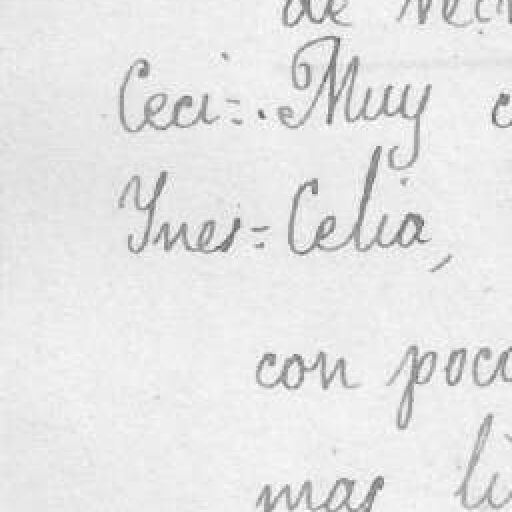 de
Ceci=. Muy
Ynes= Celia,
con
mas